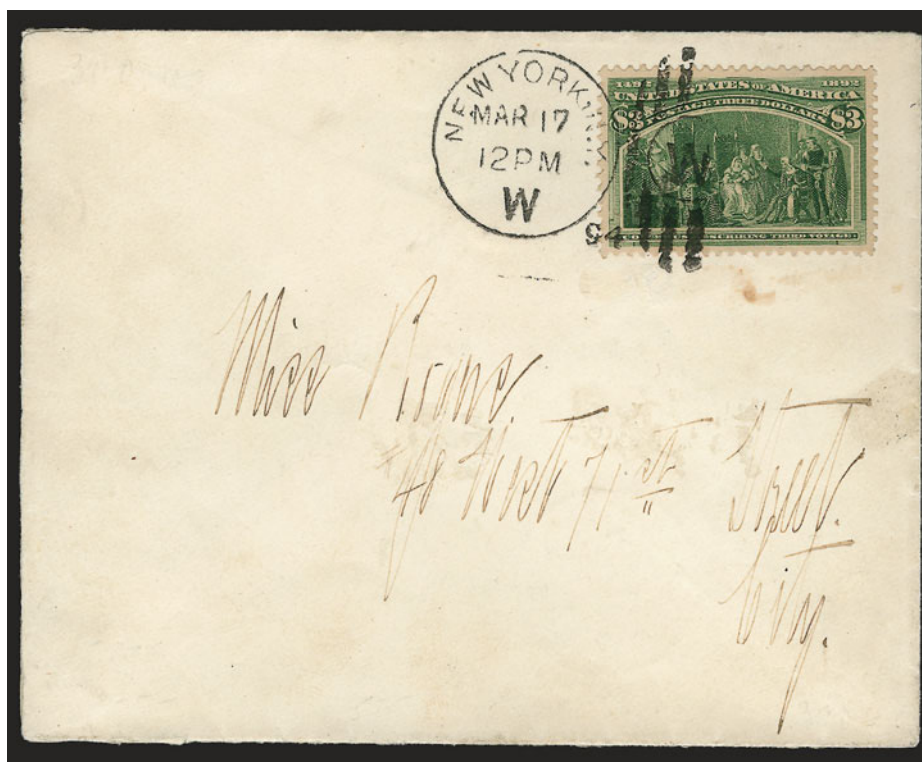 NEW YORK, N.Y.
MAR 17
12PM
W
94
1492 1892
UNITED STATES OF AMERICA
POSTAGE THREE DOLLARS
$3 $3
W
COLUMBUS DESCRIBING THIRD VOYAGE
Miss
West 71st Street.
City.